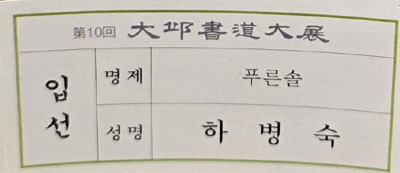 第10回 大邱書道大展
입선
명제 푸른솔
성명 하병숙